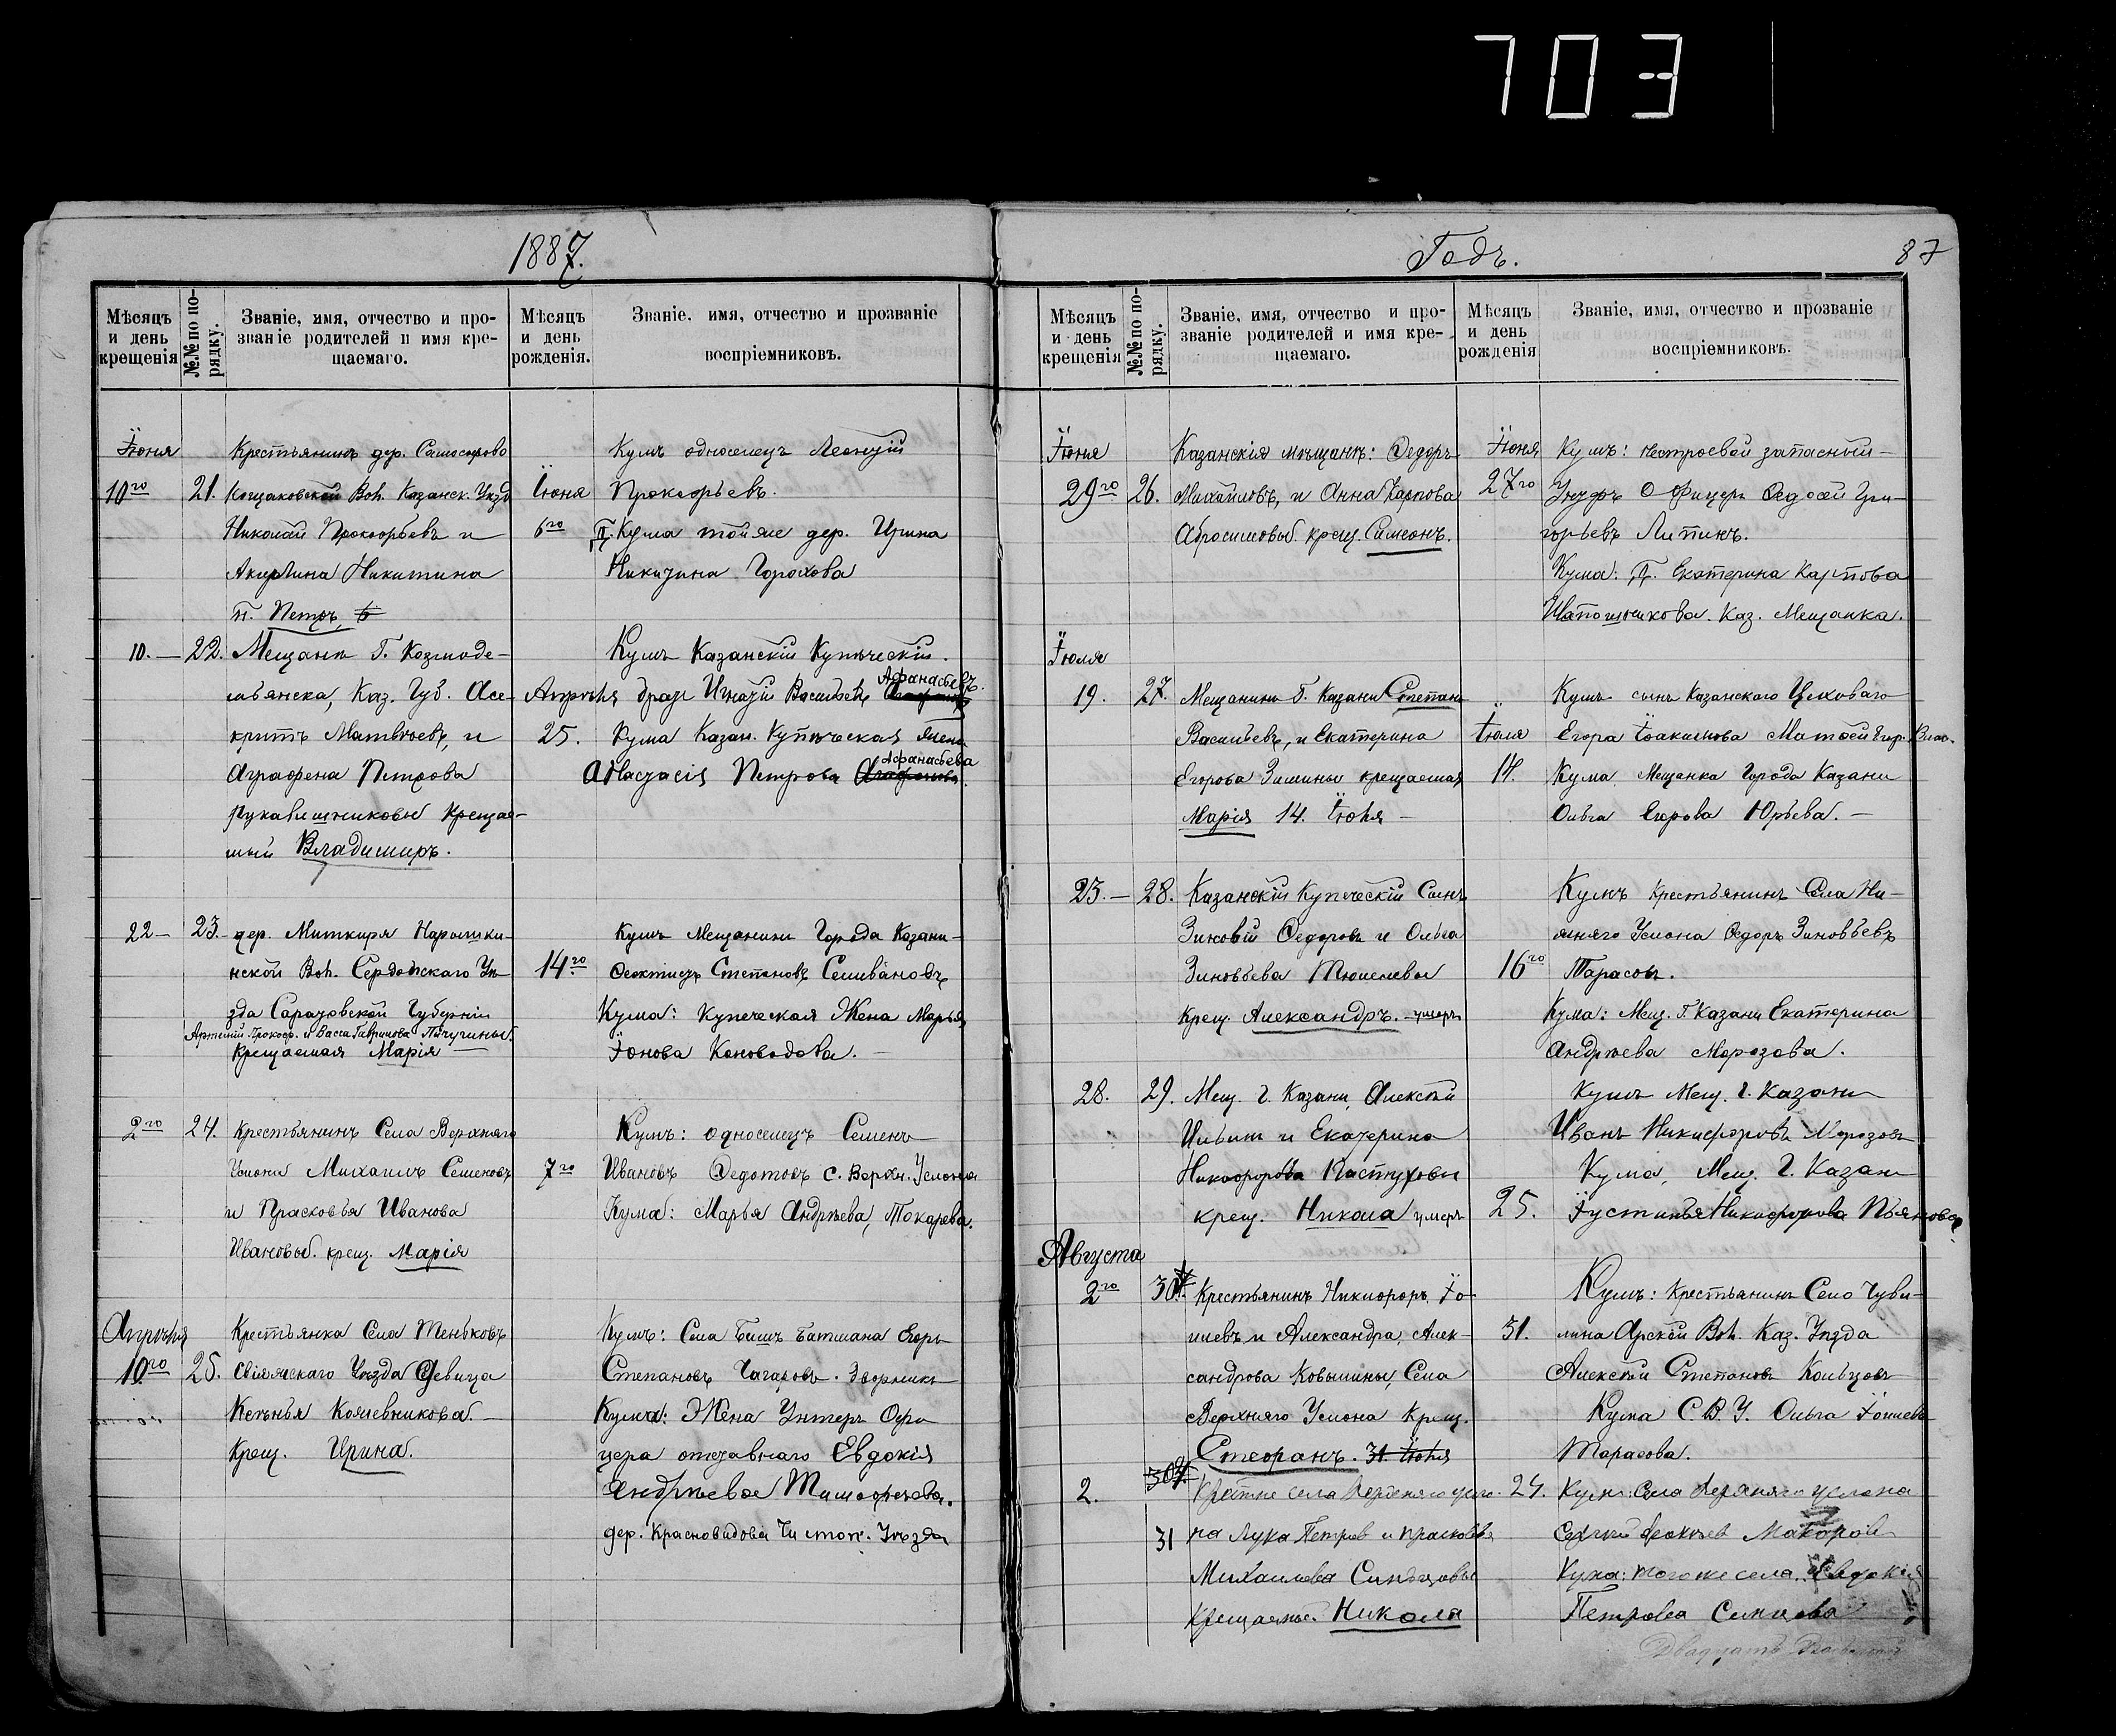 703
1887.
Мѣсяцъ и день крещенія
№№ по порядку.
Званіе, имя, отчество и про-
званіе родителей и имя кре-
щаемаго.
Мѣсяцъ и день рожденія.
Званіе, имя, отчество и прозваніе
воспріемниковъ.
Іюня
Крестьянинъ дер.
10го 21. Казанск. Уѣзд
Николай Прокофьевъ и
Никитина
п. Петръ
Іюня 6го
Кумъ односелецъ Леонтій
Прокофьевъ.
Кума тойже дер. Ирина
Никитина Горохова
10. — 22. Мещани Г. Козмоде-
мьянска, Каз. Губ. Асе-
критъ Матвѣевъ, и
Аграфена Петрова
Рукавишниковы Крещае-
мый Владимиръ.
Апрѣля 25.
Кумъ Казанскій Купѣческій
братъ Игнатій Васильевъ Афанасьевъ.
Кума Казан. Купѣческая жена
Анастасія Петрова Афанасьева
22 — 23. дер. Миткиря Нарышки-
нской Вол. Сердобскаго Уѣ-
зда Саратовской Губерніи
Артемій Прокоф. и Васса Гаврилова Пичугины.
Крещаемая Марія —
14го
Кумъ Мещанинъ Города Казани
Феоктистъ Степановъ Селивановъ
Кума: Купеческая Жена Марья
Іонова Коноводова. —
2го 24. Крестьянинъ Села Верхняго
Услона Михаилъ Семеновъ
и Прасковья Иванова
Ивановы. крещ. Марія
7го
Кумъ: односелецъ Семенъ
Ивановъ Федотовъ с. Верхн. Услона
Кума: Марья Андрѣева, Токарева.
Апрѣля
10го 25. Крестьянка Села Теньковъ
Свіяжскаго Уѣзда Девица
Кожевникова. —
Крещ. Ирина.
Кумъ: Села Бишъ Батмана Егоръ
Степановъ Чагаровъ.
Кума: Жена Унтеръ Офи
цера отставнаго Евдокія
Андрѣевва Тимофеева.
дер. Красновидова Чистоп. Уѣзда
Годъ.
87
Мѣсяцъ и день крещенія
№№ по порядку.
Званіе, имя, отчество и про-
званіе родителей и имя кре-
щаемаго.
Мѣсяцъ и день рожденія
Званіе, имя, отчество и прозваніе
воспріемниковъ.
Іюня
29го 26. Казанскія мѣщане: Федоръ
Михайловъ, и Анна Карпова
Абросимовы. крещ. Симеонъ.
Іюня 27го
Кумъ: нестроевой запасный
Унтеръ Офицеръ Федосей Гри-
горьевъ Литинъ.
Кума: Екатерина Карпова
Шапошникова. Каз. Мещанка.
Іюля
19. 27. Мещанинъ Г. Казани Степанъ
Васильевъ, и Екатерина
Егорова Зимины крещаемая
Марія 14. Іюля —
Іюля 14.
Кумъ сынъ Казанскаго Цеховаго
Егора Іоакимова Матвей Егор.
Кума Мещанка Города Казани
Ольга Егорова Юрьева. —
23. — 28. Казанскій Купеческій Сынъ
Зиновій Федоровъ и Ольга
Зиновьева Тюменевы
Крещ. Александръ. — умеръ
16го
Кумъ Крестьянинъ Села Ни-
жняго Услона Федоръ Зиновьевъ
Тарасовъ.
Кума: Мещ. Г. Казани Екатерина
Андрѣева Морозова.
28. 29. Мещ. Г. Казани, Алексѣй
Ильинъ и Екатерина
Никифорова Пастуховы
крещ. Никола умеръ
25.
Кумъ Мещ. Г. Казани
Иванъ Никифоровъ Морозовъ
Кума, Мещ. Г. Казани
Іустинья Никифорова Пьянова
Августа
2го 30. Крестьянинъ Никифоръ Іо-
ниевъ и Александра, Алек-
сандрова Ковылины, Села
Верхняго Услона Крещ.
Стефанъ. 31. Іюля
31.
Кумъ: Крестьянинъ Село Чуви-
лина Арской Вол. Каз. Уѣзда
Алексѣй Степановъ Кольцовъ
Кума С. В. У. Ольга
Тарасова.
2. 31 села Верхняго усло-
на Лука Петров и Прасковья
Михаилова Синдцовы
Крещаемый Никола
24.
Кум: Села Верхняго услона
Макаров
Кума: тогоже села Евдокія
Петрова Синцова